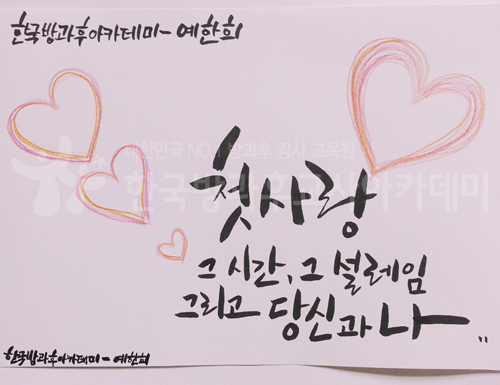 한국방과후아카데미- 예한희
대한민국 NO.1 방과후 강사 교육원
한국방과후교사아카데미
첫사랑
그 시간, 그 설레임
그리고 당신과 나 ..
한국방과후아카데미- 예한희